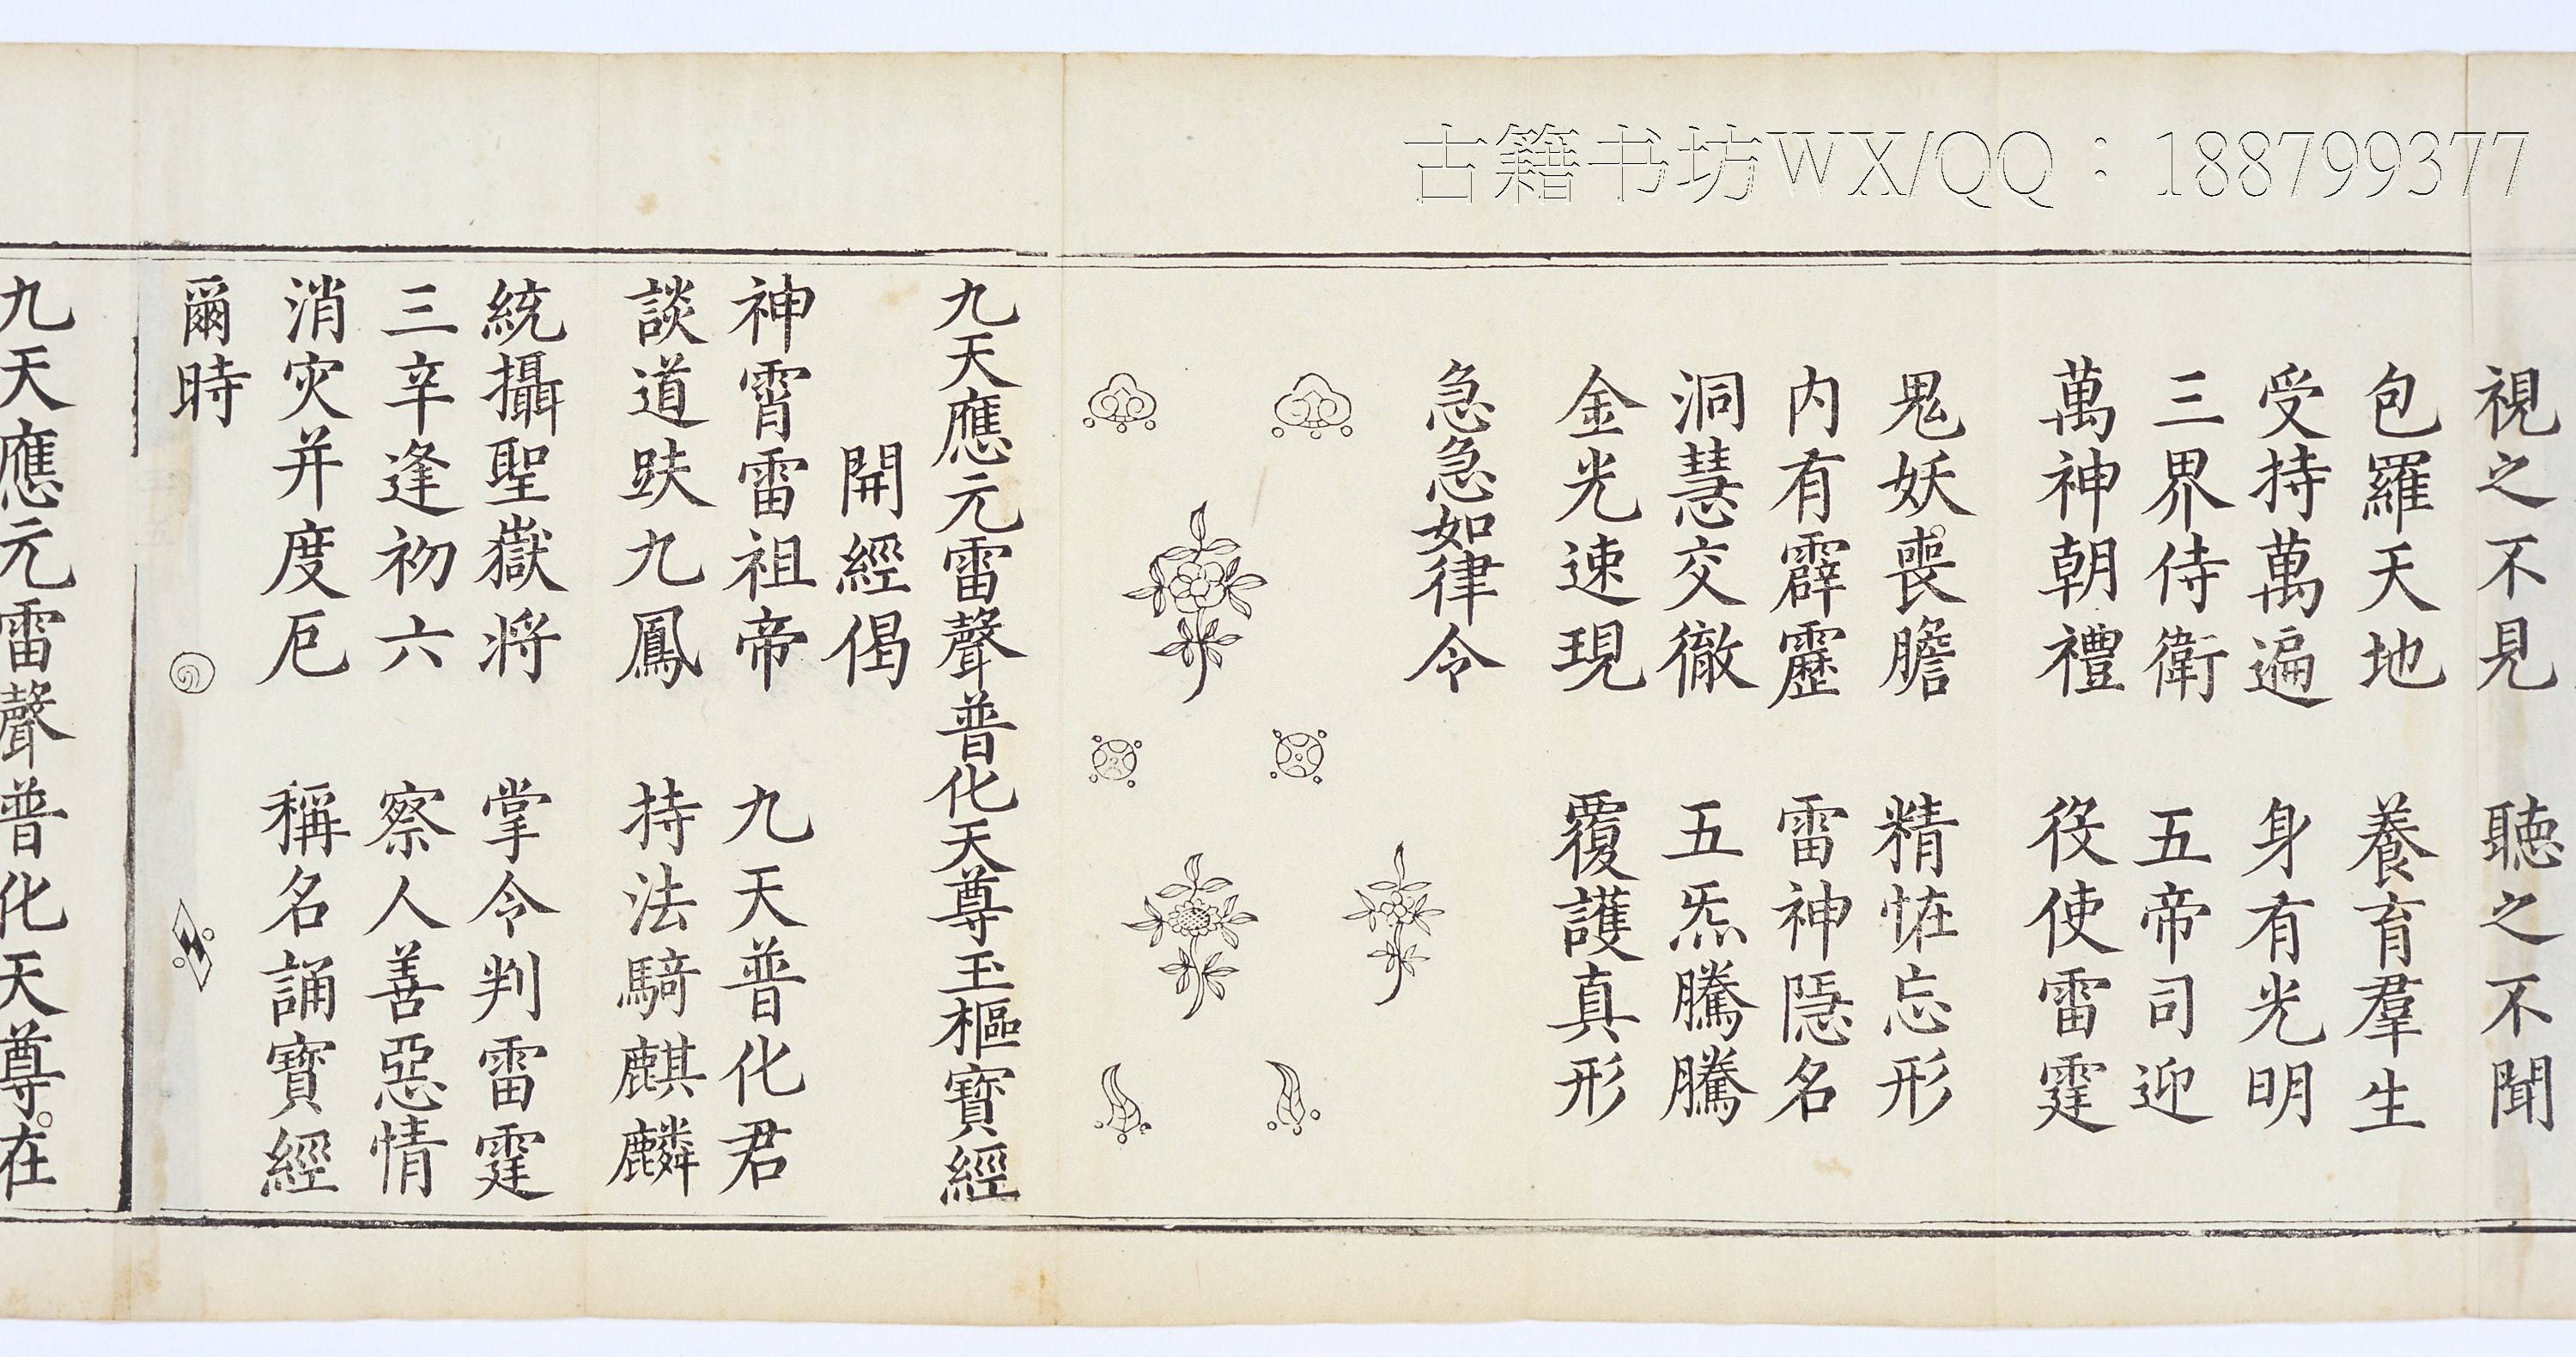 古籍书坊WX/QQ：188799377
視之不見　聽之不聞
包羅天地　養育羣生
受持萬遍　身有光明
三界侍衛　五帝司迎
萬神朝禮　役使雷霆
鬼妖喪膽　精怪忘形
内有霹靂　雷神隱名
洞慧交徹　五炁騰騰
金光速現　覆護真形
急急如律令
九天應元雷聲普化天尊玉樞寶經
開經偈
神霄雷祖帝　九天普化君
談道趺九鳳　持法騎麒麟
統攝聖嶽将　掌令判雷霆
三辛逢初六　察人善惡情
消灾并度厄　稱名誦寶經
爾時
九天應元雷聲普化天尊。在